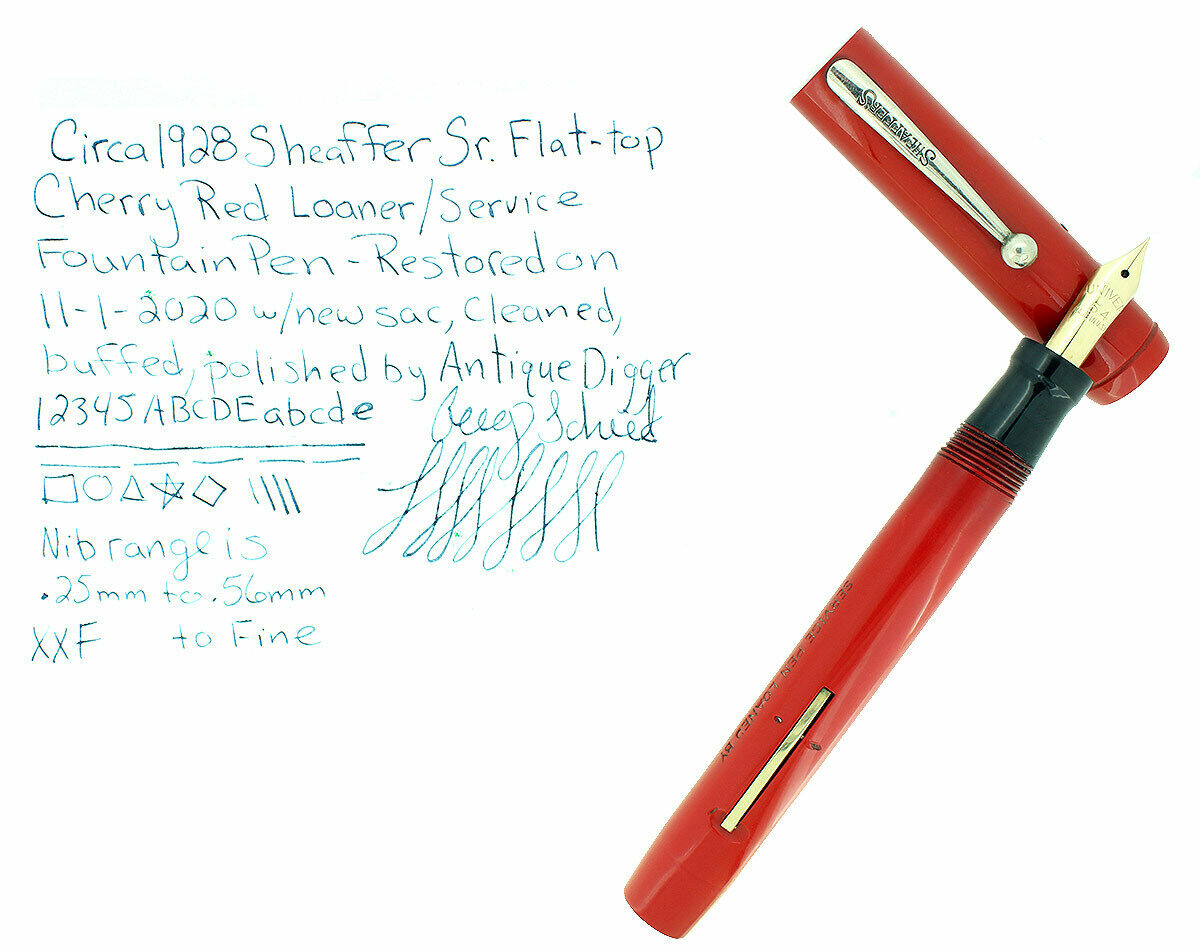 Circa 1928 Sheaffer Sr. Flat-top
Cherry Red Loaner/Service
Fountain Pen - Restored on
11-1-2020 w/new sac, Cleaned,
buffed, polished by Antique Digger
12345 ABCDE abcde
Nib range is
.25mm to .56mm
XXF to Fine
SHEAFFER'S
SERVICE PEN LOANED BY